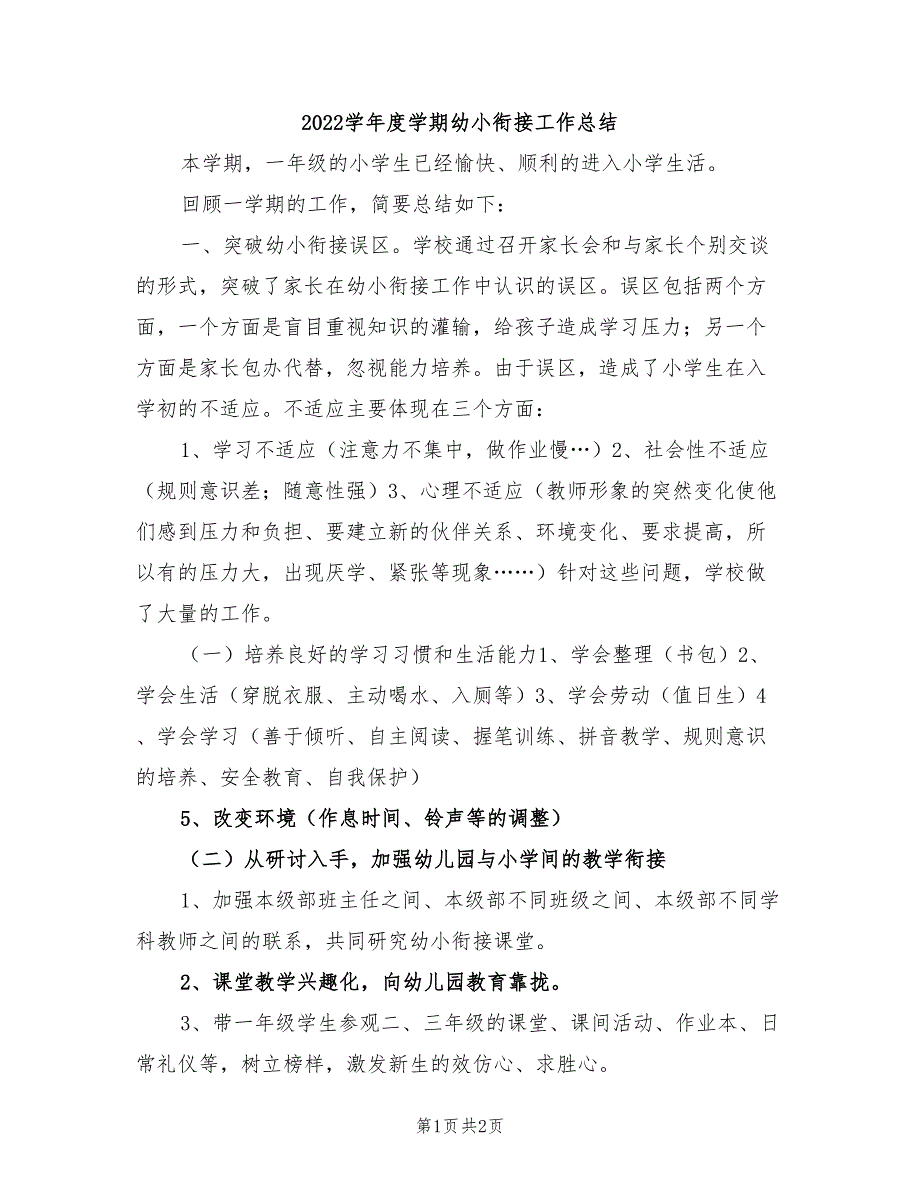 2022学年度学期幼小衔接工作总结
本学期，一年级的小学生已经愉快、顺利的进入小学生活。
回顾一学期的工作，简要总结如下：
一、突破幼小衔接误区。学校通过召开家长会和与家长个别交谈
的形式，突破了家长在幼小衔接工作中认识的误区。误区包括两个方
面，一个方面是盲目重视知识的灌输，给孩子造成学习压力；另一个
方面是家长包办代替，忽视能力培养。由于误区，造成了小学生在入
学初的不适应。不适应主要体现在三个方面：
1、学习不适应（注意力不集中，做作业慢…）2、社会性不适应
（规则意识差；随意性强）3、心理不适应（教师形象的突然变化使他
们感到压力和负担、要建立新的伙伴关系、环境变化、要求提高，所
以有的压力大，出现厌学、紧张等现象……）针对这些问题，学校做
了大量的工作。
（一）培养良好的学习习惯和生活能力1、学会整理（书包）2、
学会生活（穿脱衣服、主动喝水、入厕等）3、学会劳动（值日生）4
、学会学习（善于倾听、自主阅读、握笔训练、拼音教学、规则意识
的培养、安全教育、自我保护）
5、改变环境（作息时间、铃声等的调整）
（二）从研讨入手，加强幼儿园与小学间的教学衔接
1、加强本级部班主任之间、本级部不同班级之间、本级部不同学
科教师之间的联系，共同研究幼小衔接课堂。
2、课堂教学兴趣化，向幼儿园教育靠拢。
3、带一年级学生参观二、三年级的课堂、课间活动、作业本、日
常礼仪等，树立榜样，激发新生的效仿心、求胜心。
第1页共2页